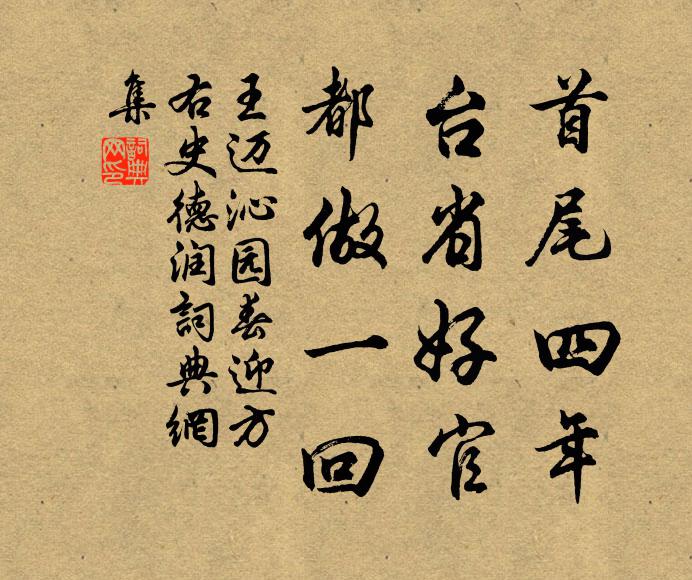 首尾四年
台省好官
都做一回
王迈沁园春迎方
右史德润詞典網
集
詞典
网印